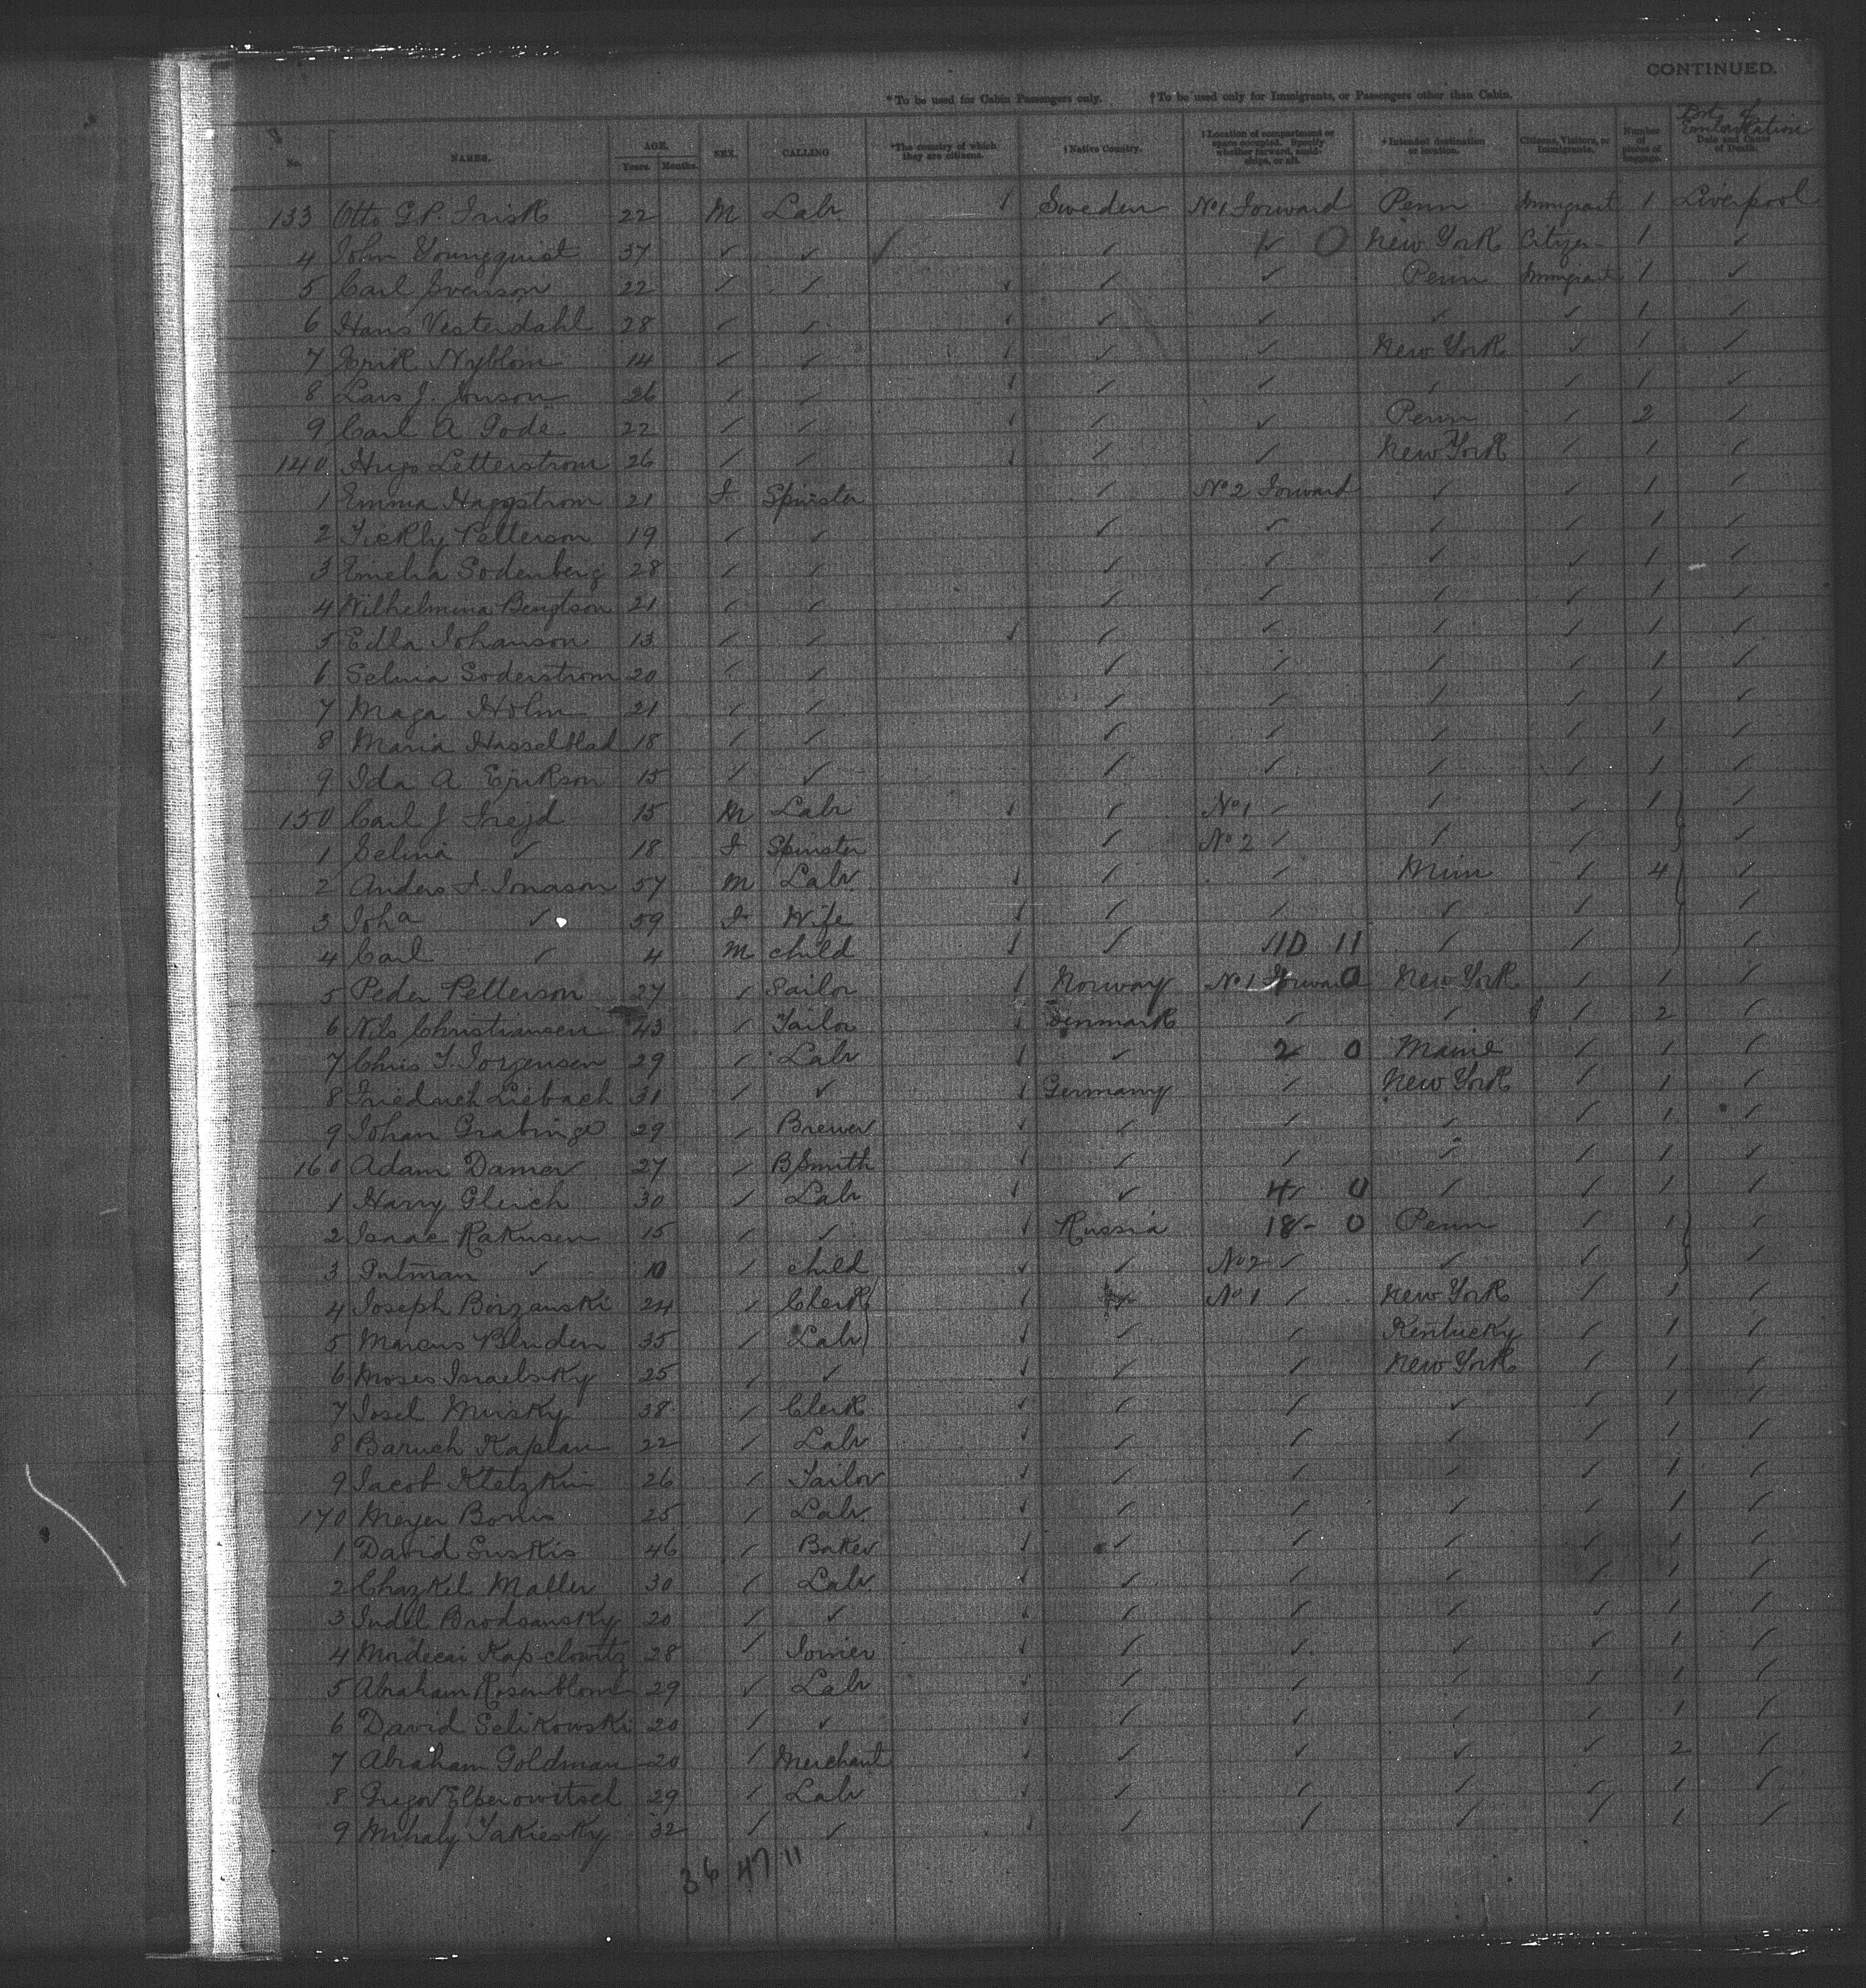 CONTINUED.
*To be used for Cabin Passengers only. †To be used only for Immigrants, or Passengers other than Cabin.
Port of Embarkation
No. NAMES. AGE. Years. Months. SEX. CALLING *The country of which they are citizens. †Native Country. †Location of compartment or space occupied. Specify whether forward, amidships, or aft. *Intended destination or location. Citizens, Visitors, or Immigrants. Number of pieces of baggage. Date and Cause of Death.
133 Otto G.P. Frisk 22 M Labr ✓ Sweden No 1 Forward Penn Immigrant 1 Liverpool
4 John Youngquist 37 ✓ ✓ / ✓ ✓ 0 New York Citizen 1 ✓
5 Carl Svenson 22 ✓ ✓ ✓ ✓ ✓ Penn Immigrant 1 ✓
6 Hans Vesterdahl 28 ✓ ✓ ✓ ✓ ✓ ✓ ✓ 1 ✓
7 Erik Nyblom 14 ✓ ✓ ✓ ✓ ✓ New York ✓ 1 ✓
8 Lars J. Jonson 26 ✓ ✓ ✓ ✓ ✓ ✓ ✓ 1 ✓
9 Carl A Gode 22 ✓ ✓ ✓ ✓ ✓ Penn ✓ 2 ✓
140 Hugo Letterstrom 26 ✓ ✓ ✓ ✓ ✓ New York ✓ 1 ✓
1 Emma Haggstrom 21 F Spinster ✓ No 2 Forward ✓ ✓ 1 ✓
2 Petterson 19 ✓ ✓ ✓ ✓ ✓ ✓ 1 ✓
3 Emelia Sodenberg 28 ✓ ✓ ✓ ✓ ✓ ✓ 1 ✓
4 Wilhelmina Bengtson 21 ✓ ✓ ✓ ✓ ✓ ✓ 1 ✓
5 Edla Johanson 13 ✓ ✓ ✓ ✓ ✓ ✓ ✓ 1 ✓
6 Selma Soderstrom 20 ✓ ✓ ✓ ✓ ✓ ✓ 1 ✓
7 Maga Holm 21 ✓ ✓ ✓ ✓ ✓ ✓ 1 ✓
8 Maria Hasselblad 18 ✓ ✓ ✓ ✓ ✓ ✓ 1 ✓
9 Ida A Erikson 15 ✓ ✓ ✓ ✓ ✓ ✓ 1 ✓
150 Carl J Frejd 15 M Labr ✓ ✓ No 1 ✓ ✓ ✓ 1 ✓
1 Selma ✓ 18 F Spinster ✓ No 2 ✓ ✓ ✓ ✓
2 Anders F. Jonason 57 M Labr ✓ ✓ ✓ Minn ✓ 4 ✓
3 Joha ✓ 59 F Wife ✓ ✓ ✓ ✓ ✓ ✓
4 Carl ✓ 4 M child ✓ ✓ 11D 11 ✓ ✓ ✓
5 Peder Petterson 27 ✓ Sailor ✓ Norway No 1 Forward 0 New York ✓ 1 ✓
6 Nils Christiansen 43 ✓ Tailor ✓ Denmark ✓ ✓ ✓ 2 ✓
7 Chris T. Jorgensen 29 ✓ Labr ✓ ✓ 2 0 Maine ✓ 1 ✓
8 Friedrich Liebach 31 ✓ ✓ ✓ Germany ✓ New York ✓ 1 ✓
9 Johan Grabinge 29 ✓ Brewer ✓ ✓ ✓ ✓ ✓ 1 ✓
160 Adam Damer 27 ✓ BSmith ✓ ✓ ✓ ✓ ✓ 1 ✓
1 Harry Gleich 30 ✓ Labr ✓ ✓ 4 0 ✓ ✓ 1 ✓
2 Isaac Rakusen 15 ✓ ✓ ✓ Russia 18 - 0 Penn ✓ 1 ✓
3 ✓ 10 ✓ child ✓ ✓ No 2 ✓ ✓ ✓ ✓
4 Joseph Borzanski 24 ✓ Clerk ✓ ✓ No 1 ✓ New York ✓ 1 ✓
5 Marcus Bluden 35 ✓ Labr ✓ ✓ ✓ Kentucky ✓ 1 ✓
6 Moses Israelsky 25 ✓ ✓ ✓ ✓ ✓ New York ✓ 1 ✓
7 Josel Mursky 38 ✓ Clerk ✓ ✓ ✓ ✓ ✓ 1 ✓
8 Baruch Kaplan 22 ✓ Labr ✓ ✓ ✓ ✓ ✓ 1 ✓
9 Jacob Kletzkin 26 ✓ Tailor ✓ ✓ ✓ ✓ ✓ 1 ✓
170 Meyer Borus 25 ✓ Labr ✓ ✓ ✓ ✓ ✓ 1 ✓
1 David Suskis 46 ✓ Baker ✓ ✓ ✓ ✓ ✓ 1 ✓
2 Chazkel Maller 30 ✓ Labr ✓ ✓ ✓ ✓ ✓ 1 ✓
3 Judel Brodsansky 20 ✓ ✓ ✓ ✓ ✓ ✓ ✓ 1 ✓
4 Mordecai Kapelowitz 28 ✓ Joiner ✓ ✓ ✓ ✓ ✓ 1 ✓
5 Abraham Rosenblom 29 ✓ Labr ✓ ✓ ✓ ✓ ✓ 1 ✓
6 David Selikowski 20 ✓ ✓ ✓ ✓ ✓ ✓ ✓ 1 ✓
7 Abraham Goldman 20 ✓ Merchant ✓ ✓ ✓ ✓ ✓ 2 ✓
8 Gregor Elperowitsch 29 ✓ Labr ✓ ✓ ✓ ✓ ✓ 1 ✓
9 Mihaly Takiesky 32 ✓ ✓ ✓ ✓ ✓ ✓ ✓ 1 ✓
36 47 11